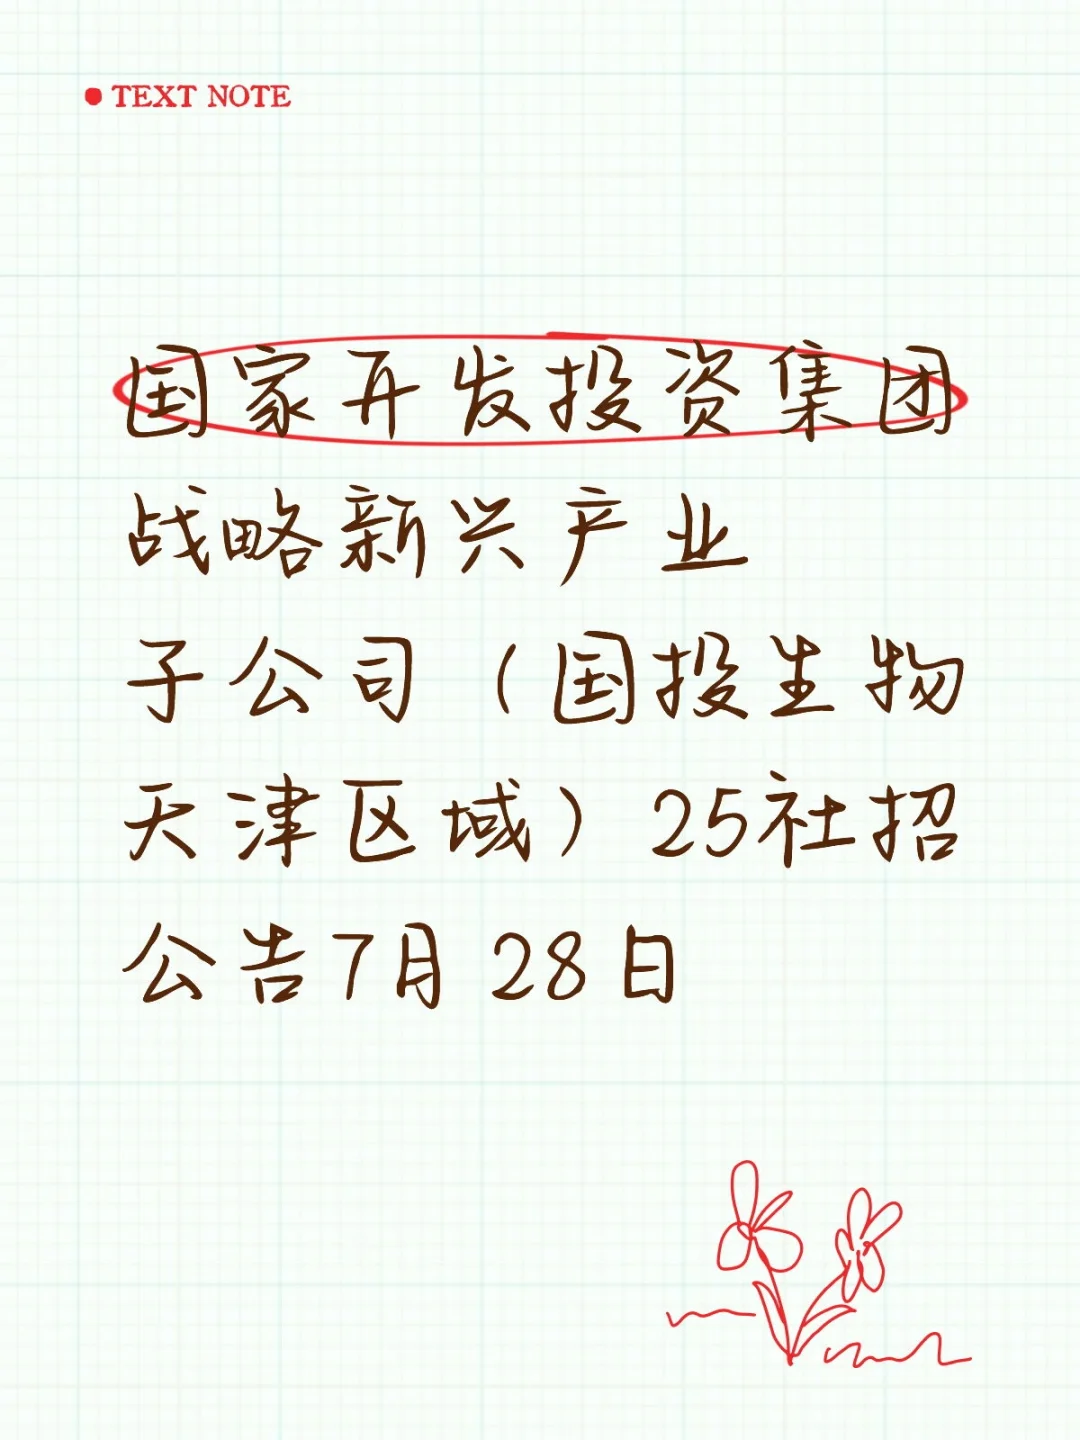 TEXT NOTE
国家开发投资集团
战略新兴产业
子公司（国投生物
天津区域）25社招
公告7月28日